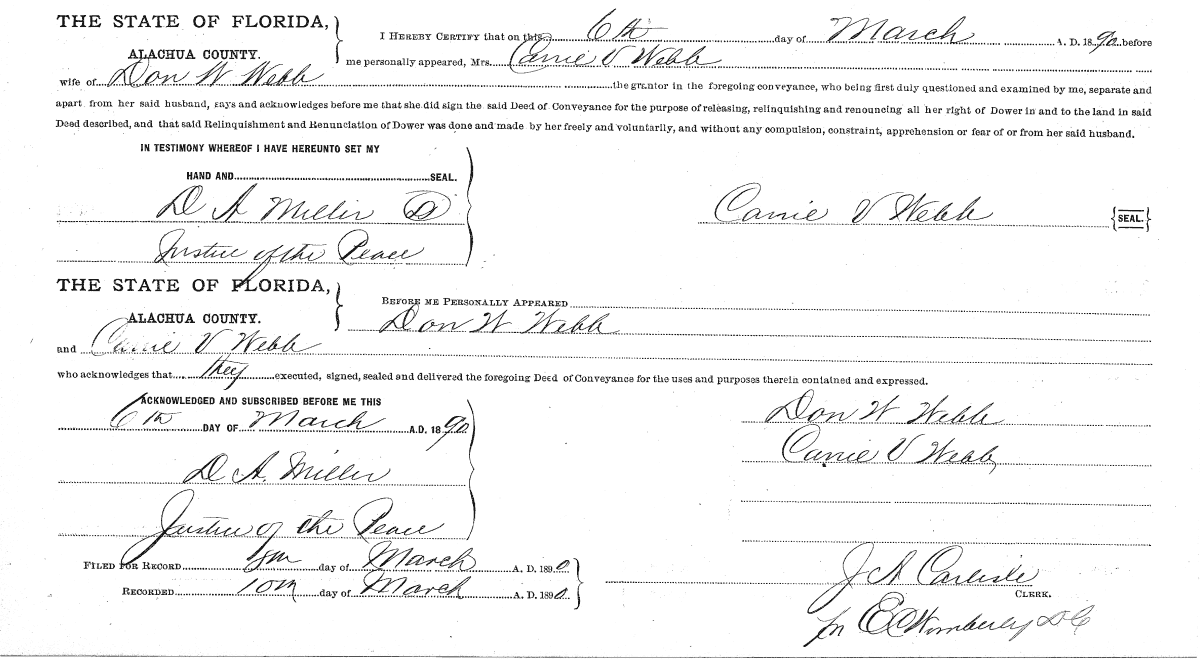 THE STATE OF FLORIDA,
ALACHUA COUNTY.
I HEREBY CERTIFY that on this 6th day of March A. D. 1890 before
me personally appeared, Mrs. Carrie V Webb
wife of Don W Webb the grantor in the foregoing conveyance, who being first duly questioned and examined by me, separate and
apart from her said husband, says and acknowledges before me that she did sign the said Deed of Conveyance for the purpose of releasing, relinquishing and renouncing all her right of Dower in and to the land in said
Deed described, and that said Relinquishment and Renunciation of Dower was done and made by her freely and voluntarily, and without any compulsion, constraint, apprehension or fear of or from her said husband.
IN TESTIMONY WHEREOF I HAVE HEREUNTO SET MY
HAND AND SEAL.
D A Miller
Justice of the Peace
Carrie V Webb {SEAL.}
THE STATE OF FLORIDA,
ALACHUA COUNTY.
BEFORE ME PERSONALLY APPEARED
Don W Webb
and Carrie V Webb
who acknowledges that they executed, signed, sealed and delivered the foregoing Deed of Conveyance for the uses and purposes therein contained and expressed.
ACKNOWLEDGED AND SUBSCRIBED BEFORE ME THIS
6th DAY OF March A.D. 1890
D A. Miller
Justice of the Peace
Don W Webb
Carrie V Webb
FILED FOR RECORD day of March A. D. 1890
RECORDED 10th day of March A. D. 1890
J A Carlisle
CLERK.
E C Wimberly D C